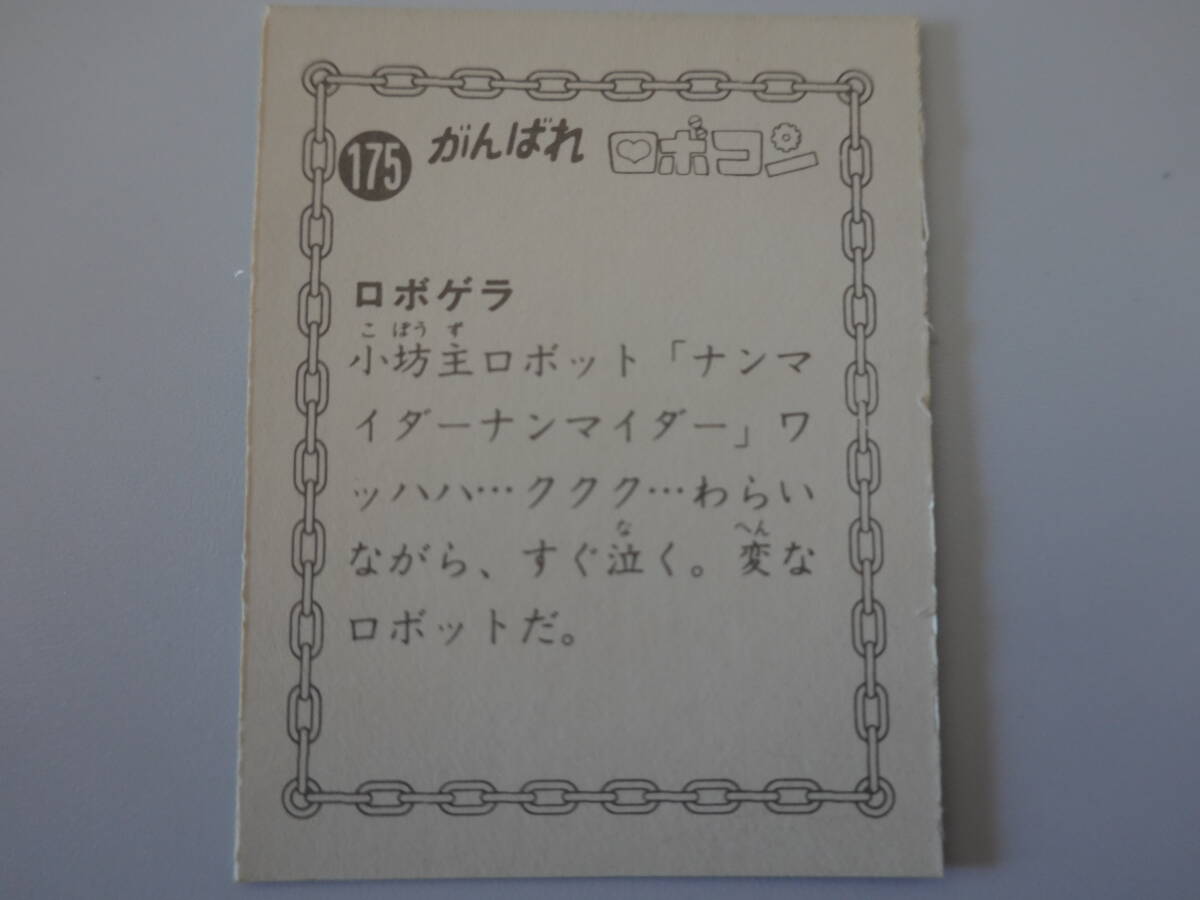 175 がんばれ ロボコン
ロボゲラ
こ ぼう ず
小坊主ロボット「ナンマ
イダーナンマイダー」ワ
ッハハ…ククク…わらい
な へん
ながら、すぐ泣く。変な
ロボットだ。